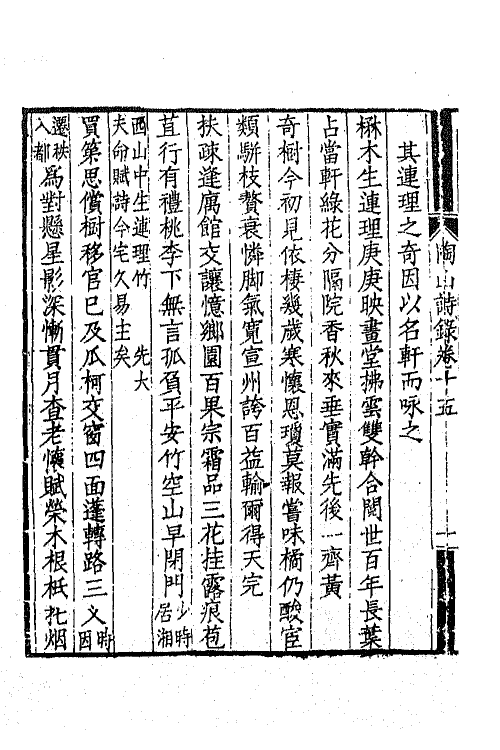 陶山詩錄卷十五 一
其連理之奇因以名軒而咏之
楙木生連理庚庚映畫堂拂雲雙幹合閱世百年長葉
占當軒綠花分隔院香秋來垂實滿先後一齊黃
奇樹今初見依棲幾歲寒懷恩瓊莫報嘗味橘仍酸宦
類駢枝贅衰憐脚氣寬宣州誇百益輸爾得天完
扶疎逢厲館交讓憶鄉園百果宗霜品三花挂露痕苞
苴行有禮桃李下無言孤負平安竹空山早閉門少時居湘
西山中生連理竹先大夫命賦詩今宅久易主矣
買第思償樹移官已及瓜柯交窗四面蓬轉路三义時因
遷秩入都為對懸星影深慚貫月查老懷賦榮木根柢烟